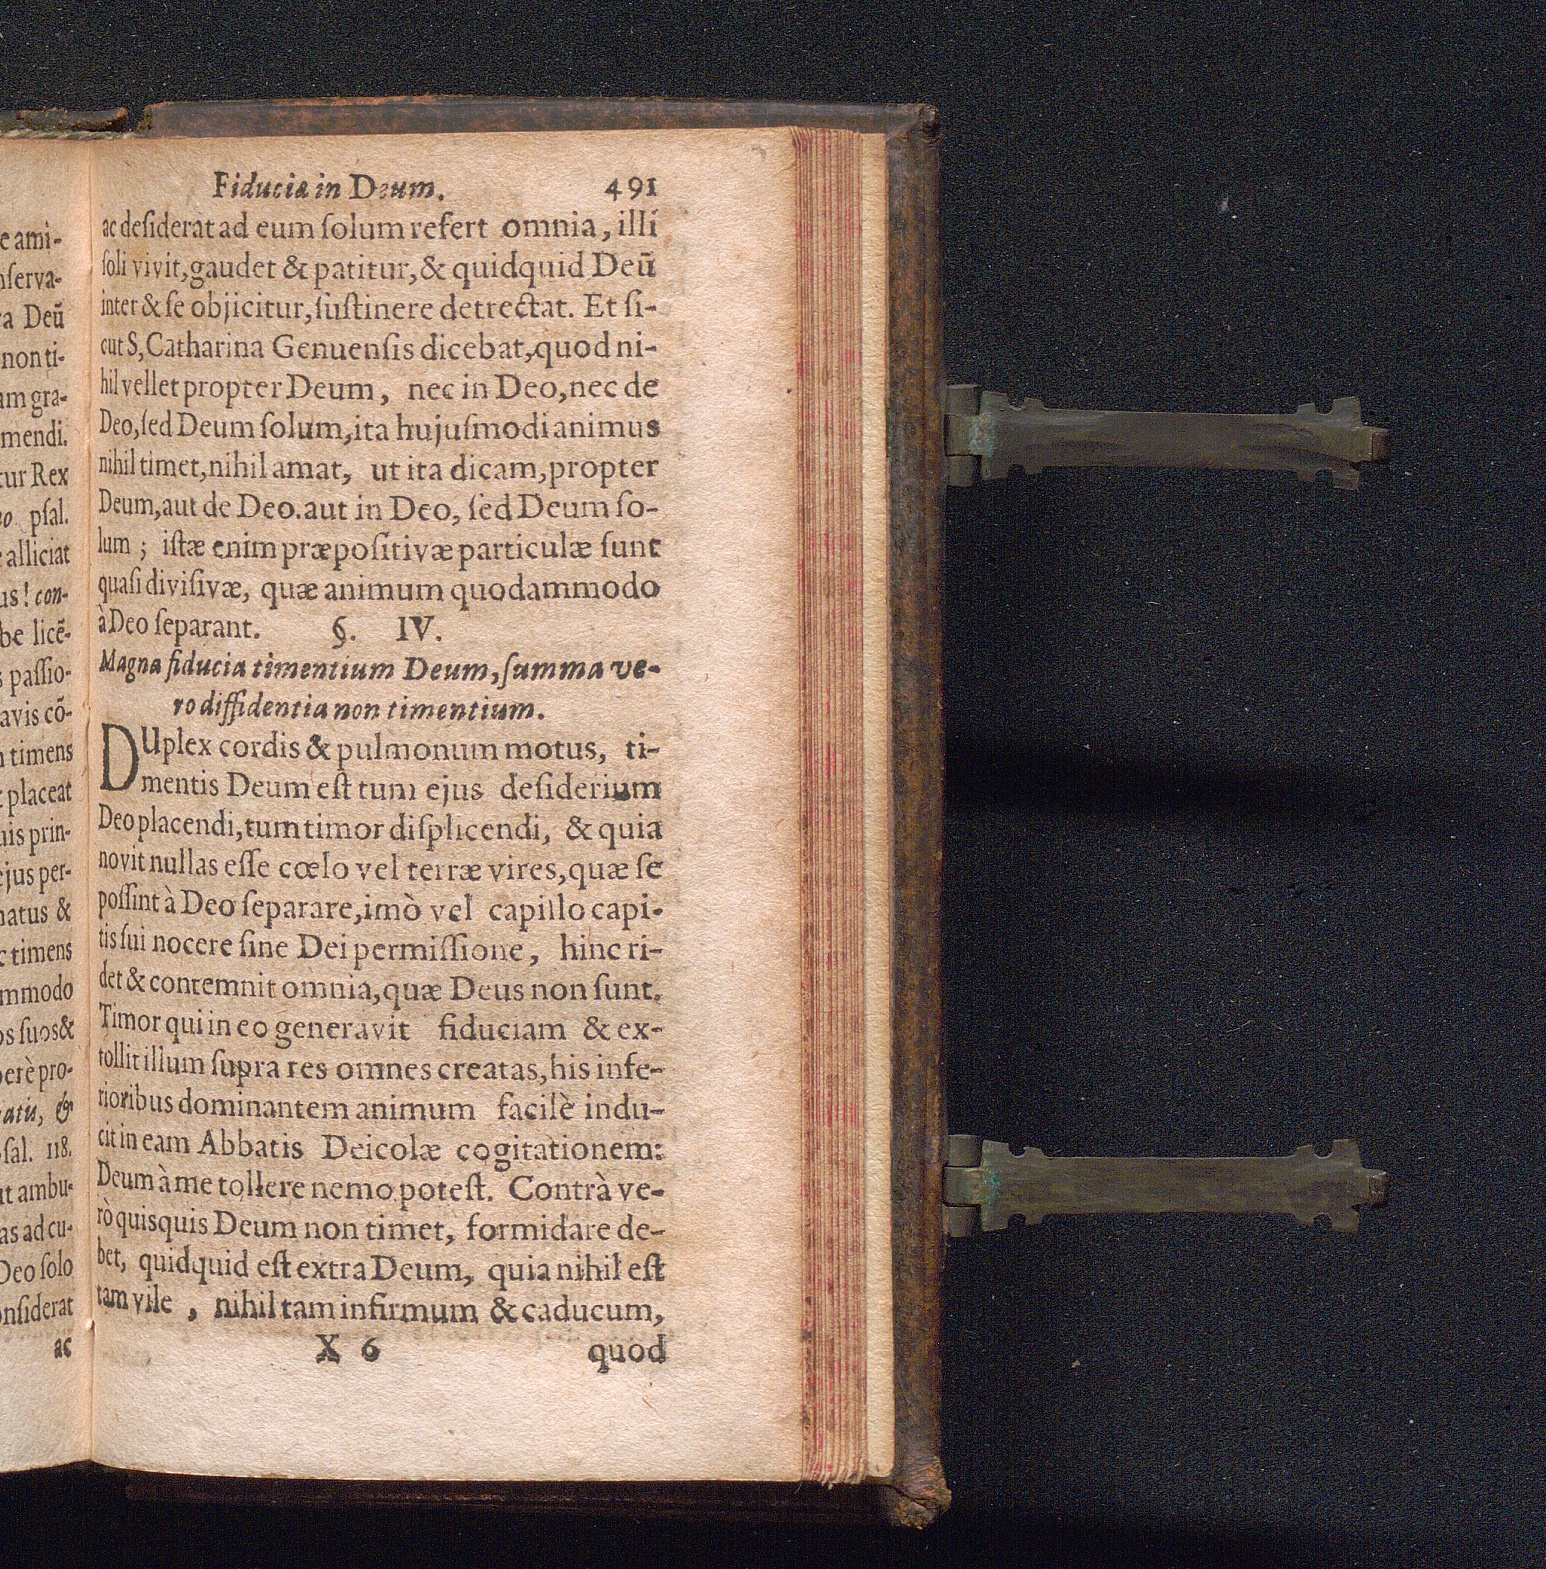 e ami-
nſerva-
ra Deũ
non ti-
am gra-
mendi.
tur Rex
no pſal.
e alliciat
us! con-
be licẽ-
s paſſio-
avis cõ-
n timens
t placeat
uis prin-
ejus per-
natus &
c timens
mmodo
os ſuos &
perè pro-
atis, &
pſal. 118.
ut ambu-
as ad cu-
Deo ſolo
onſiderat
ac
Fiducia in Deum. 491
ac deſiderat ad eum ſolum refert omnia, illi
ſoli vivit, gaudet & patitur, & quidquid Deũ
inter & ſe objicitur, ſuſtinere detrectat. Et ſi-
cut S, Catharina Genuenſis dicebat, quod ni-
hil vellet propter Deum, nec in Deo, nec de
Deo, ſed Deum ſolum, ita hujuſmodi animus
nihil timet, nihil amat, ut ita dicam, propter
Deum, aut de Deo. aut in Deo, ſed Deum ſo-
lum; iſtæ enim præpoſitivæ particulæ ſunt
quaſi diviſivæ, quæ animum quodammodo
à Deo ſeparant. §. IV.
Magna fiducia timentium Deum, ſumma ve-
ro diffidentia non timentium.
DUplex cordis & pulmonum motus, ti-
mentis Deum eſt tum ejus deſiderium
Deo placendi, tum timor diſplicendi, & quia
novit nullas eſſe cœlo vel terræ vires, quæ ſe
poſſint à Deo ſeparare, imò vel capillo capi-
tis ſui nocere ſine Dei permiſſione, hinc ri-
det & contemnit omnia, quæ Deus non ſunt.
Timor qui in eo generavit fiduciam & ex-
tollit illum ſupra res omnes creatas, his infe-
rioribus dominantem animum facilè indu-
cit in eam Abbatis Deicolæ cogitationem:
Deum à me tollere nemo poteſt. Contrà ve-
rò quisquis Deum non timet, formidare de-
bet, quidquid eſt extra Deum, quia nihil eſt
tam vile, nihil tam infirmum & caducum,
X 6 quod